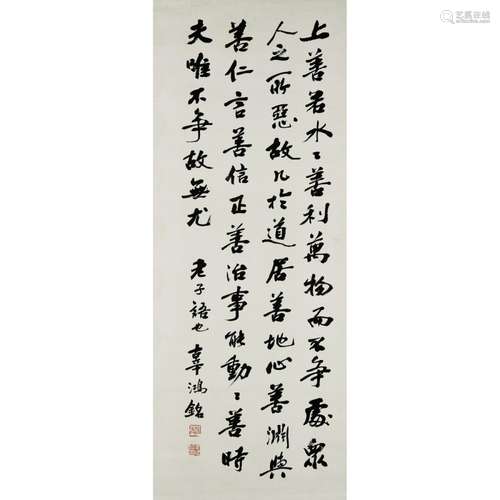 上善若水〻善利萬物而不争處衆
人之所惡故几於道居善地心善淵與
善仁言善信正善治事能動〻善時
夫唯不争故無尤
老子語也 辜鴻銘
艺狐在线